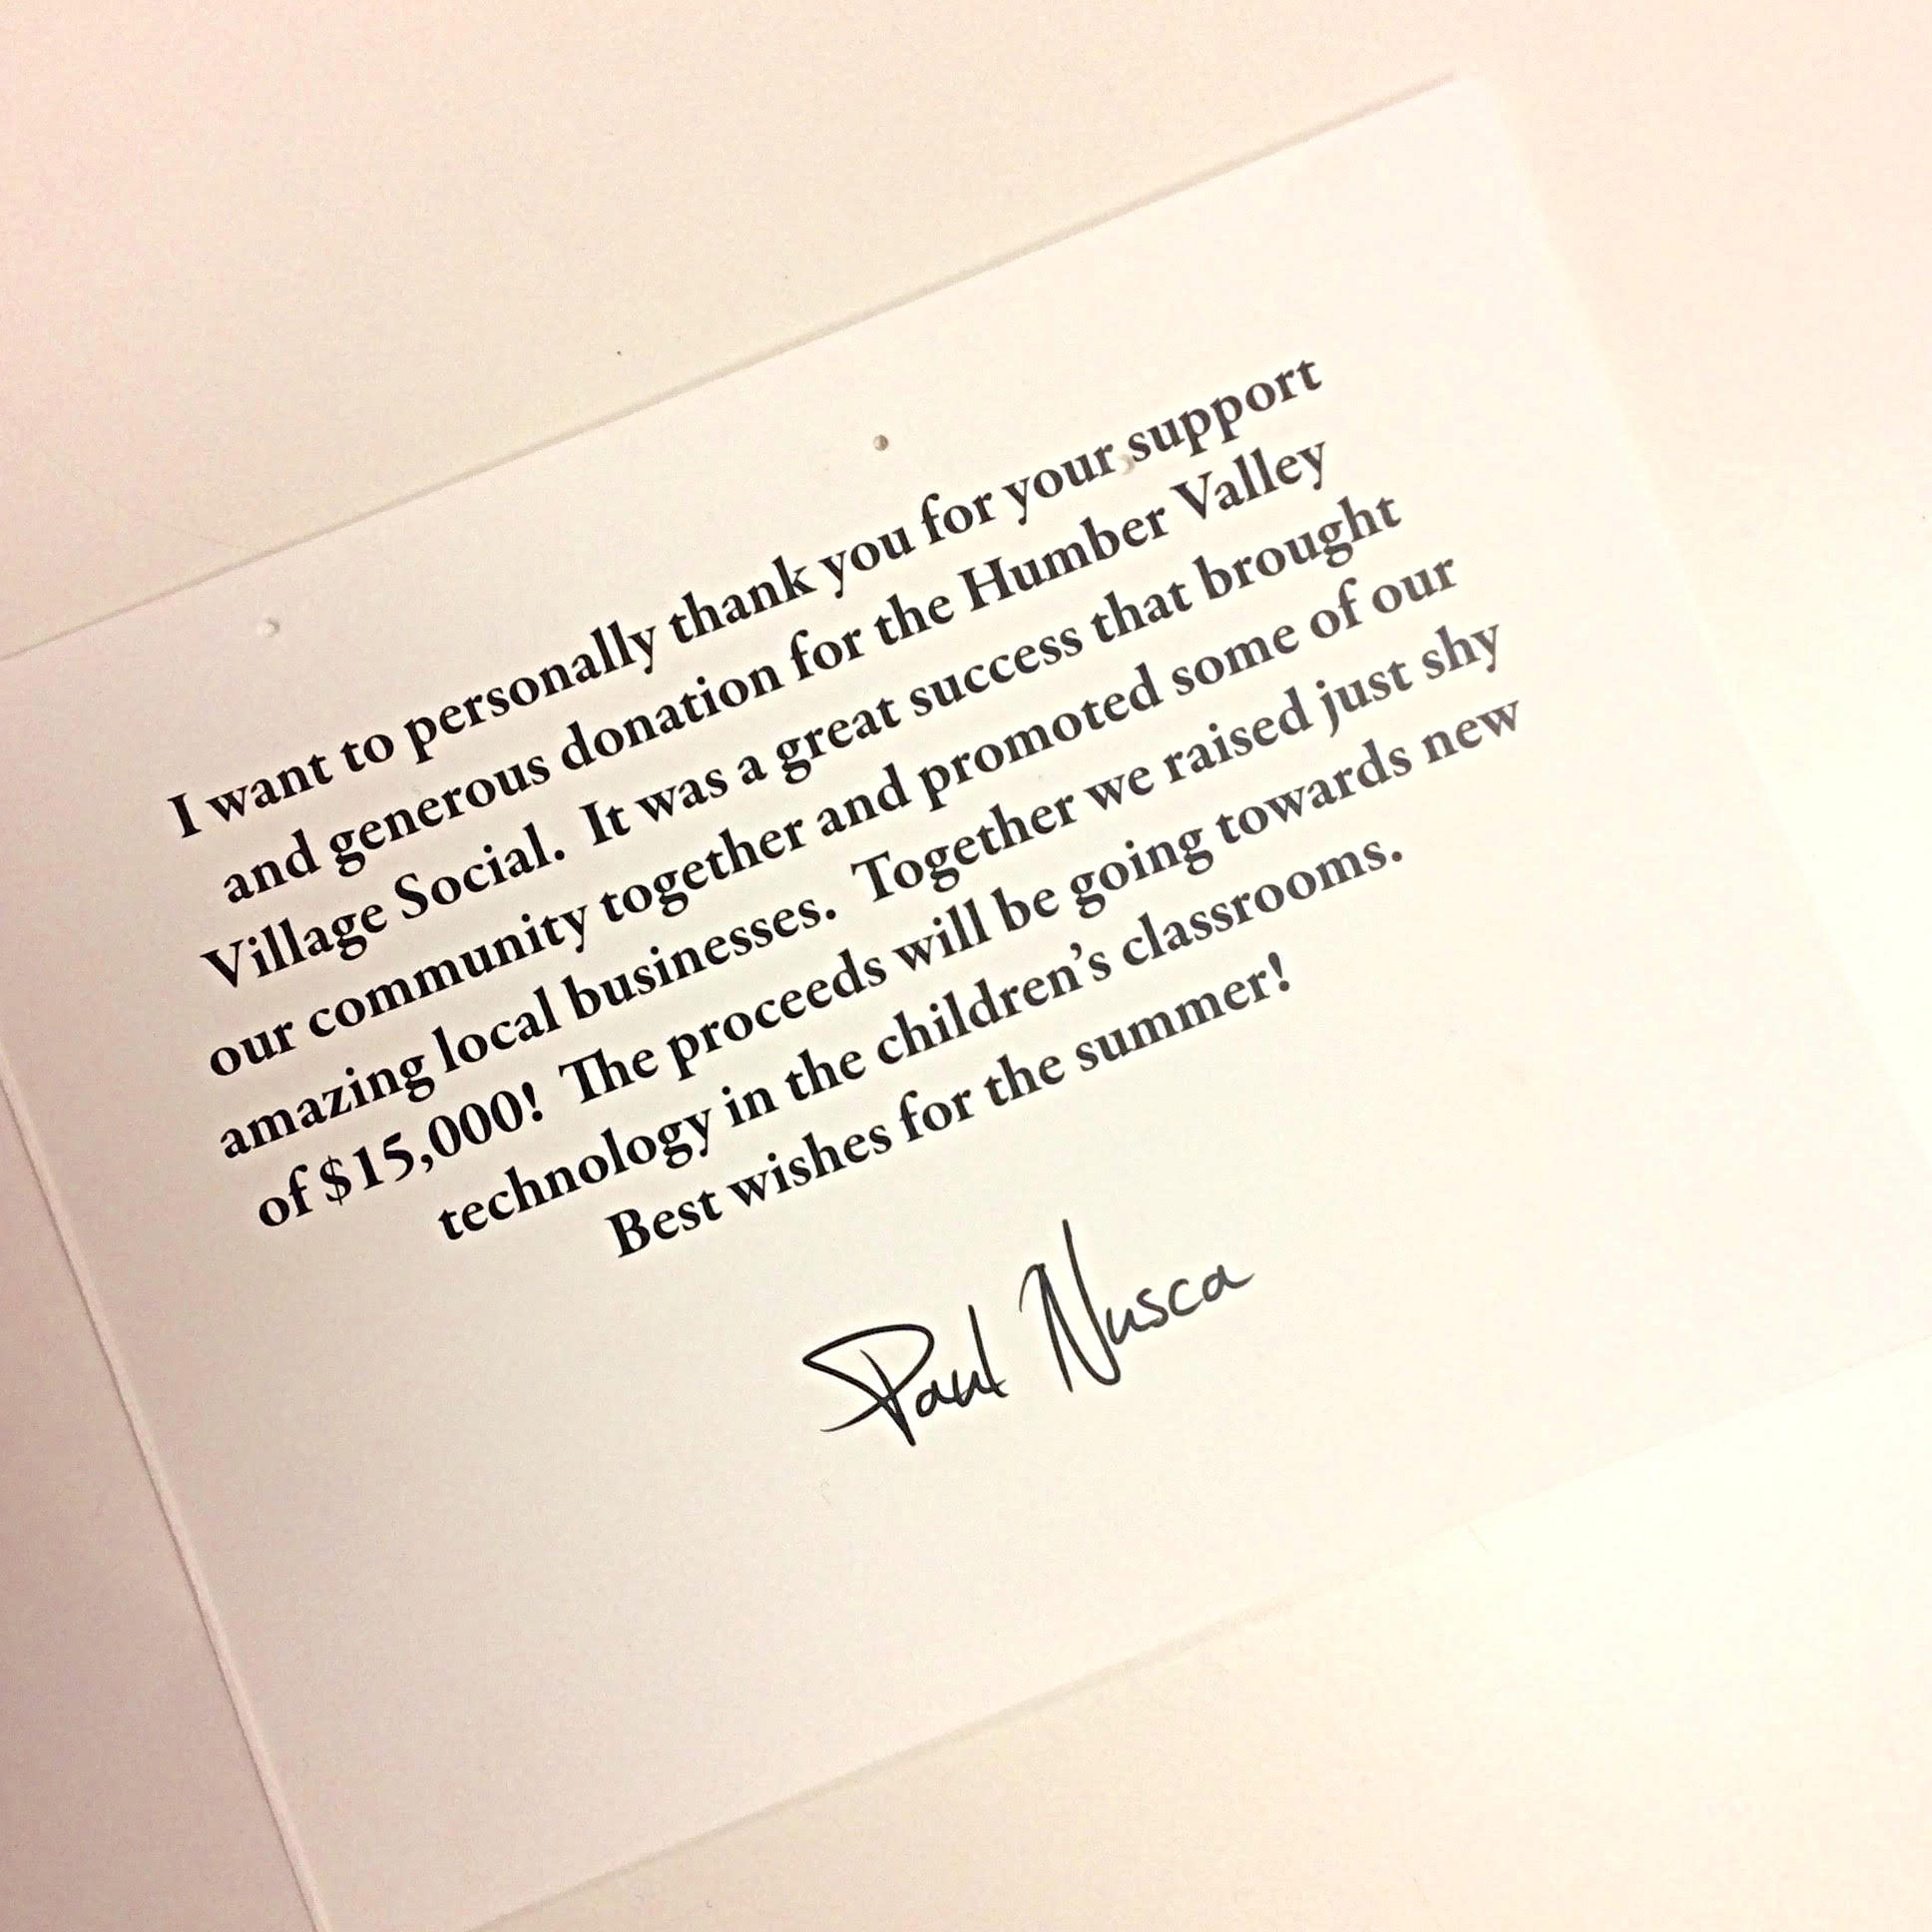 I want to personally thank you for your support
and generous donation for the Humber Valley
Village Social. It was a great success that brought
our community together and promoted some of our
amazing local businesses. Together we raised just shy
of $15,000! The proceeds will be going towards new
technology in the children’s classrooms.
Best wishes for the summer!
Paul Nusca